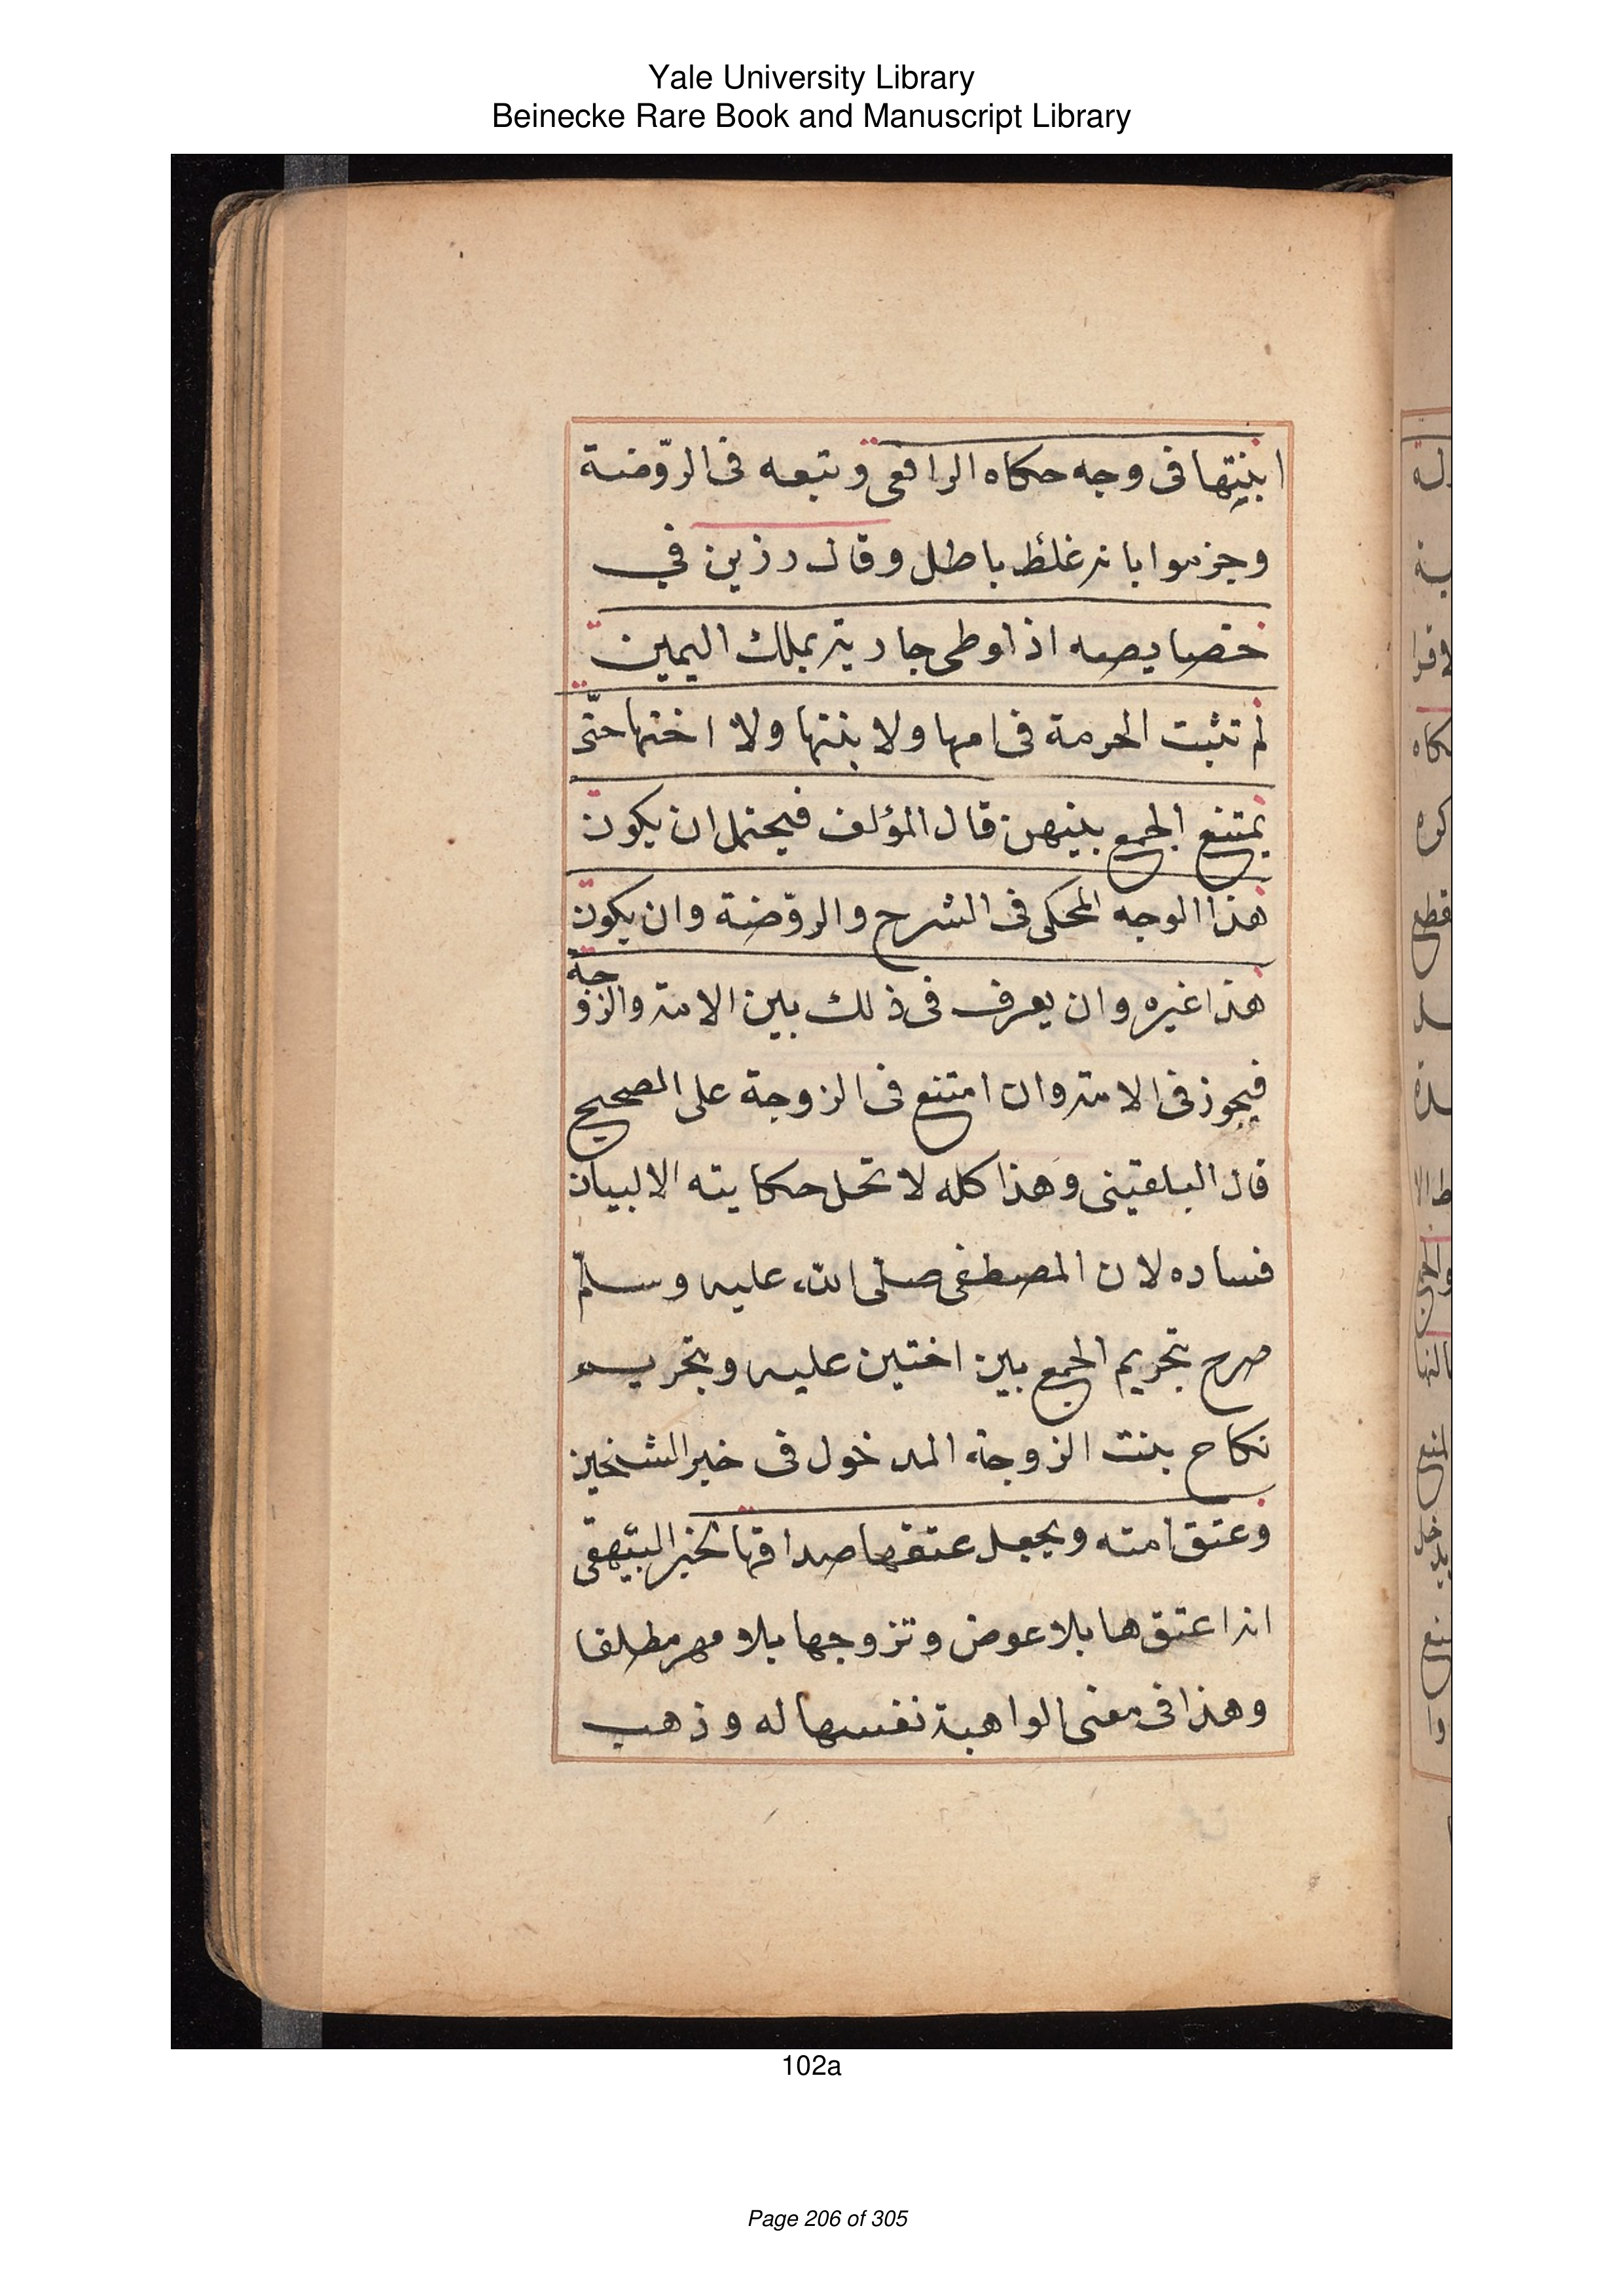 Yale University Library
Beinecke Rare Book and Manuscript Library
ابنتها فى وجه حكاه الرافعى وتبعه فى الروّضة
وجزموا بانه غلط باطل وقال رزين في
خصايصه اذا وطى جاريته بملك اليمين
لم تثبت الحرمة فى امها ولا بنتها ولا اختها حتّى
يمتنع الجمع بينهن قال المؤلف فيحتمل ان يكون
هذا الوجه المحكى فى الشرح والروّضة وان يكون
هذا غيره وان يعرف فى ذلك بين الامة والزوجة
فيجوز فى الامة وان امتنع فى الزوجة على الصحيح
قال البلقينى وهذا كله لا تحل حكايته الا لبيان
فساده لان المصطفى صلّى الله عليه وسلّم
صرح بتحريم الجمع بين اختين عليه وبتحريم
نكاح بنت الزوجة المدخول فى خبر الشيخين
وعتق امته ويجعل عتقها صداقها لخبر البيهقى
انه اعتقها بلا عوض وتزوجها بلا مهر مطلقا
وهذا فى معنى الواهبة نفسها له وذهب
102a
Page 206 of 305